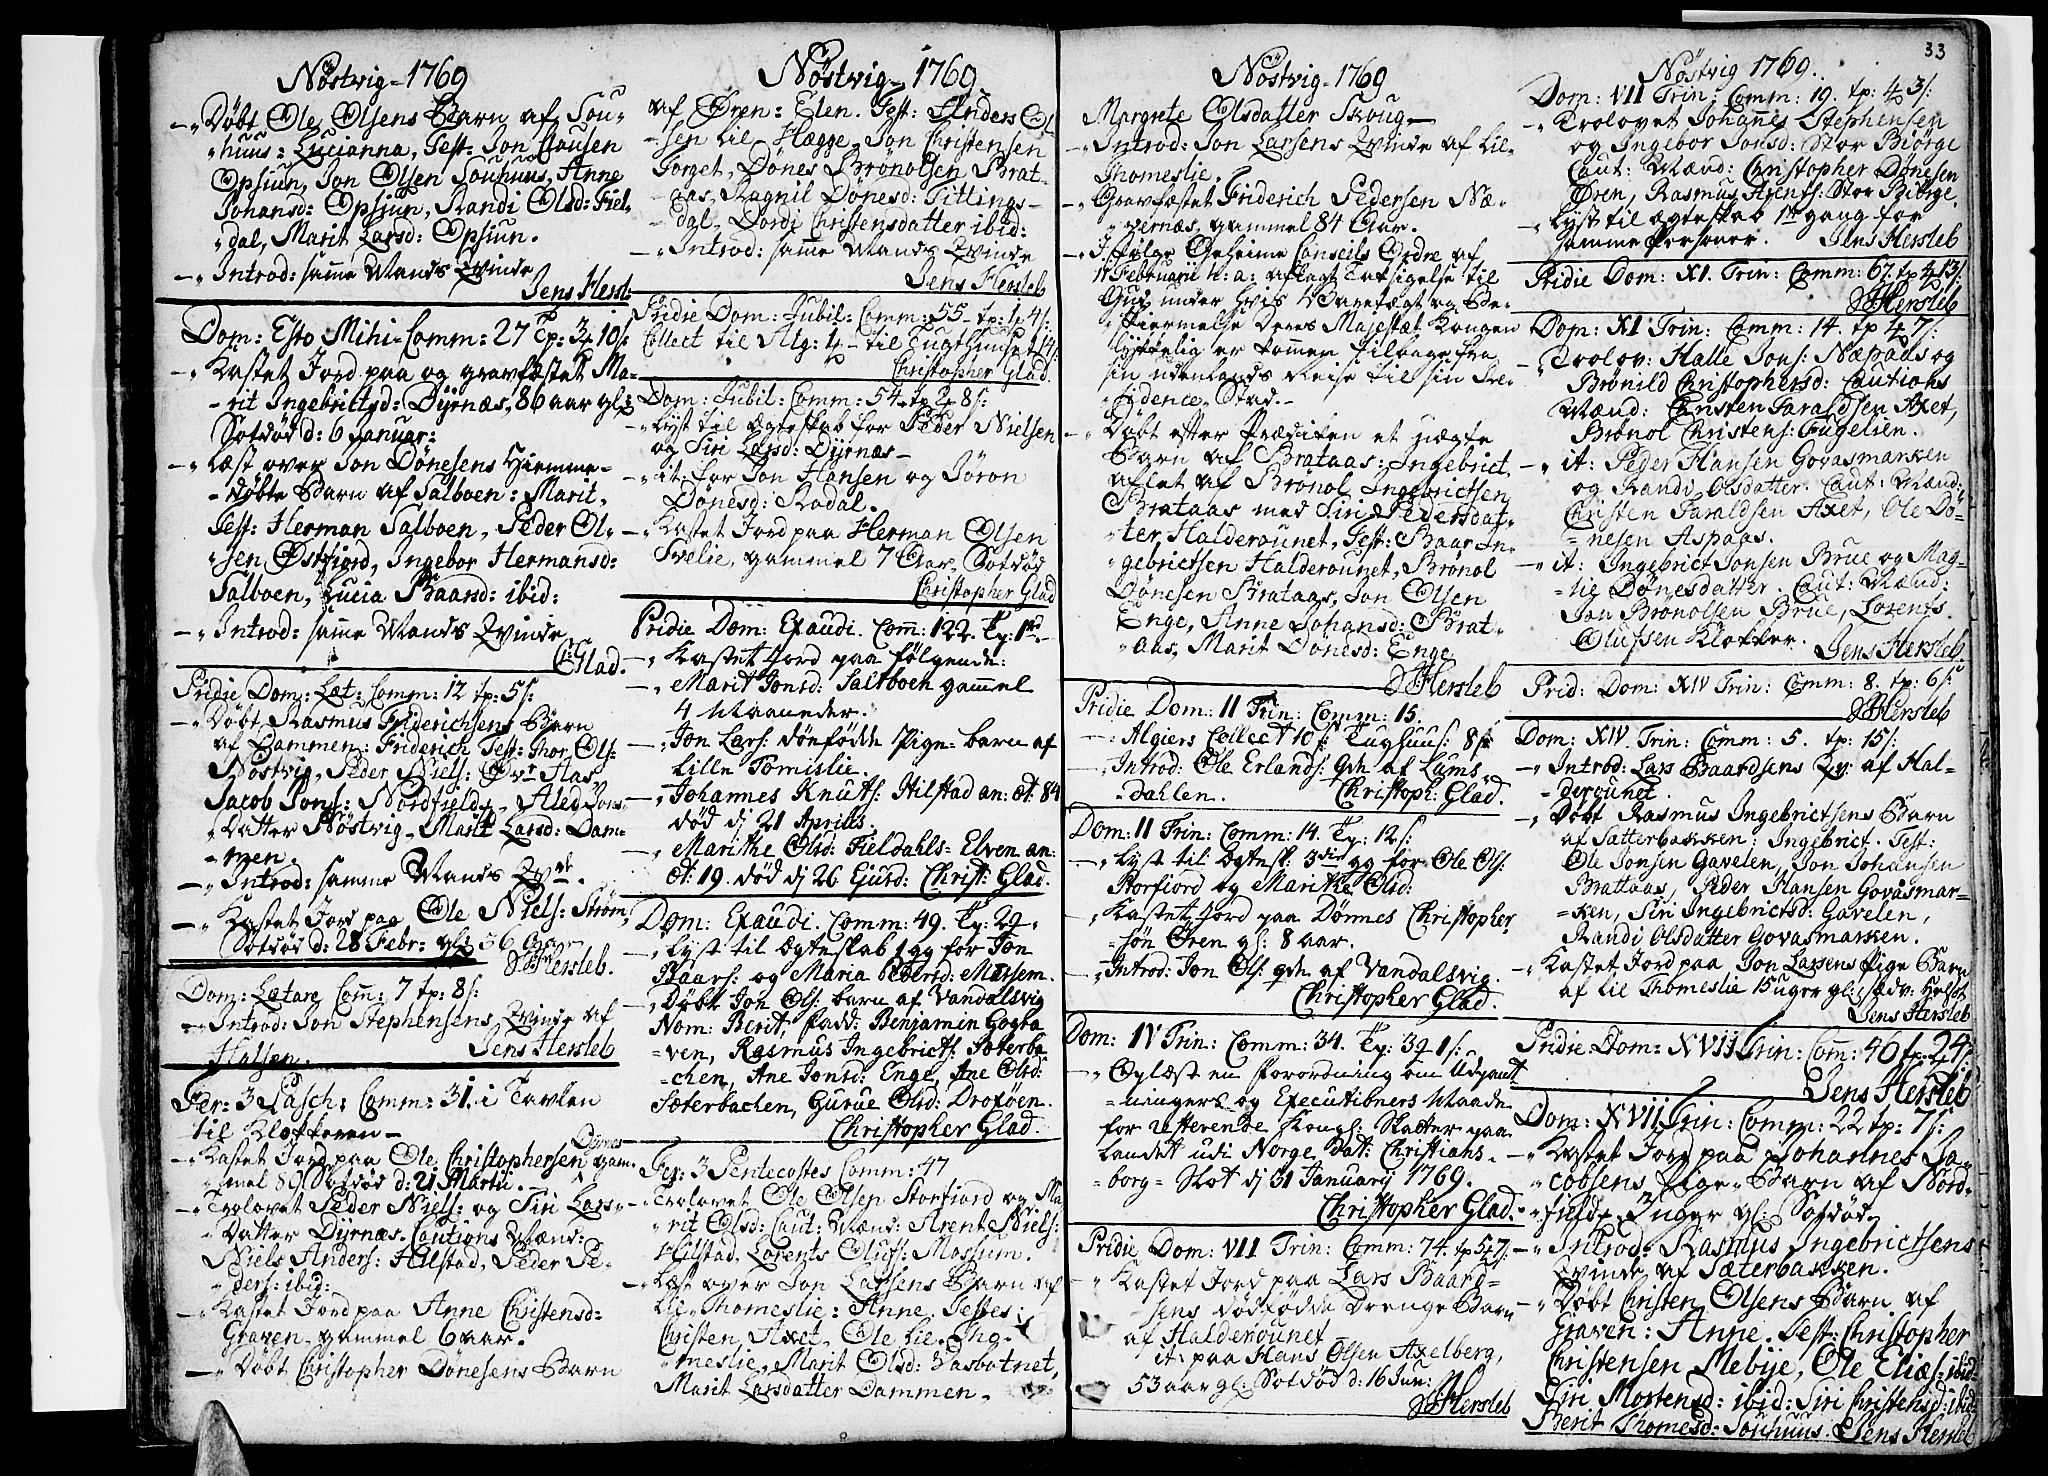 Nöstvig - 1769
Döbt Ole Olsens Barn af Sou-
huus: Lucianna, Test: Jon Clausen
Opsiun, Jon Olsen Souhuus, Anne
Johansd: Opsiun, Randi Olsd: Fiel-
dal, Marit Larsd: Opsiun.
Introd: samme Mands Qvinde
Jens Hersl:
Dom: Esto Mihi - Comm: 27 Tp: 3 10 s:
Kastet Jord paa og gravfæstet Ma-
rit Ingebrictsd: Dÿrnæs, 86 aar gl:
Sotdöd d: 6 Januar:
Læst over Jon Dönesens Hiemme-
döbte Barn af Salboen: Marit,
Test: Herman Salboen, Peder Ol-
sen Østfiord, Ingebor Hermansd:
Salboen, Lucia Baarsd: ibid:
Introd: samme Mands Qvinde
C: Glad.
Pridie Dom: Læt: Comm: 12 tp: 5 s:
Döbt Rasmus Friderichsens Barn
af Dammen: Friderich Test: Thor Ols:
Nöstvig, Peder Niels: Øvr Aas
Jacob Jons: Nordfieldt, Aled Jons-
Datter Nöstvig - Marit Larsd: Dam-
men.
Introd: samme Mands Qvde.
Kastet Jord paa Ole Niels: Ström,
Sotdöd d: 28 Febr: gl: 36 Aar
J Hersleb.
Dom: Lætare Com: 7 tp: 8 s:
Introd: Jon Stephensens Qvinde af
Halsen.
Jens Hersleb
Fer: 3 Pasch: Comm: 31. i Tavlen
til Klokkeren -
Kastet Jord paa Ole Christophersen Dÿrnes gam-
mel 89 Sotdöd d: 21 Martii.
Trolovet Peder Niels: og Siri Lars-
Datter Dÿrnæs. Cautions Mænd:
Niels Anders: Hilstad, Peder Pe-
ders: ibid:
Kastet Jord paa Anne Christensd:
Graven gammel 6 aar.
Döbt Christopher Dönesens Barn
Nöstvig - 1769
af Øren: Elen. Test: Anders Ol-
sen lil Hægge, Jon Christensen
Torget, Dönes Brönolsen Brat-
aas, Ragnil Dönesd: Tittings-
dal, Dordi Christensdatter ibid:
Introd: samme Mands Qvinde
Jens Hersleb
Pridie Dom: Jubil: Comm: 55 - tp: 4 s:
Collect til Alg: - til Tugthuuset 14 s:
Christopher Glad.
Dom: Jubil: Comm: 54 tp 2 8 s:
Lyst til Ægteskab for Peder Nielsen
og Siri Larsd: Dÿrnæs -
it: for Jon Hansen og Jöron
Dönesd: Rodal.
Kastet Jord paa Herman Olsen
Svelie, gammel 7 Aar, Sotdöd
Christopher Glad
Pridie Dom: Exaudi. Com: 122. Tp: 1
Kastet Jord paa fölgende:
Marit Jonsd: Saltboen gammel
4 Maaneder.
Jon Lars: dönfödde Pige-barn af
Lille Tomislie.
Johannes Knuts: Hilstad an: æt: 84
död dj 21 Aprilis.
Marithe Olsd: Fieldahls-Elven an:
æt: 19. död dj 26 Ejusd: Christ: Glad.
Dom: Exaudi. Comm: 49. Tp: 29
Lyst til Ægteskab 1 gg for Jon
Baars: og Maria Pedersd: Mærsem.
Döbt Jon Ols: barn af Vandalsvig
Nom: Berit, fadd: Benjamin Gogsta-
ven, Rasmus Ingebricts: Sæterba-
chen, Ane Jonsd: Enge, Ane Olsd:
Sæterbachen, Gurue Olsd: Droföen.
Christopher Glad.
Fer: 3 Pentecostes Comm: 47
Trolovet Ole Olsen Storfiord og Ma-
rit Olsd: Caut: Mænd: Arent Niels:
Hilstad, Lorents Olufs: Mossum.
Læst over Jon Larsens Barn af
Lil Thomeslie: Anne. Testes:
Christen Axet, Ole lil Tho-
meslie, Marit Olsd: Vasbotnet,
Marit Larsdatter Dammen.
Nöstvig - 1769
Margrete Olsdatter Skoug -
Introd: Jon Larsens Qvinde af Lil-
Thomeslie.
Gravfæstet Friderich Pedersen Næ-
vernæs, gammel 84 Aar.
I fölge Geheime Conseils Ordre af
17 Februarii h: a: aflagt Taksigelse til
Gud under hvis Varetægt og Be-
skiermelse Deres Majestæt Kongen
lykkelig er kommen tilbage fra
sin udenlands Reise til sin Re-
sidence-Stad. -
Döbt efter Prædiken et uægte
Barn af Brataas: Ingebrict,
aflet af Brönol Ingebrictsen
Brataas med Siri Pedersdat-
ter Halderounet, Test: Baar In-
gebrictsen Halderounet, Brönol
Dönesen Brataas, Jon Olsen
Enge, Anne Johansd: Brat-
aas, Marit Jonosd: Enge
J Hersleb
Pridie Dom: II Trin: Comm: 15.
Algiers Collect 10 s: Tughuus: 8 s:
Introd: Ole Erlands: qde af Lums-
dahlen. Christoph: Glad.
Dom: II Trin: Comm: 14. Tp: 12 s:
Lyst til Egtesk: 3die gg for Ole Ols:
Storfiord og Marithe Olsd:
Kastet Jord paa Dönnes Christopher-
sön Øren gl: 8 aar.
Introd: Jon Ols: qde af Vandalsvig.
Christopher Glad.
Dom: IV Trin: Comm: 34. Tp: 39 1 s:
Oplæst en Forordning om Udpant-
ningers og Executioners Maade
for resterende Kongl: Skatter paa
Landet udi Norge, Dat: Christians-
borg-Slot dj 31 Januarij 1769.
Christopher Glad.
Pridie Dom: VII Trin: Comm: 74. tp 5 7 s:
Kastet Jord paa Lars Baard-
sens dödfödde Drenge Barn
af Halderounet
it: paa Hans Olsen Axelberg,
53 aar gl: Sotdöd d: 16 Jun:
J Hersleb
33
Nöstvig 1769.
Dom: VII Trin: Comm: 19. tp: 3 s:
Trolovet Johanes Stephensen
og Ingebor Jonsd: Stor Biörge
Caut: Mænd: Christopher Dönesen
Øren, Rasmus Arents: Stor Biörge.
Lyst til ægteskab 1te gang for
samme Personer. Jens Hersleb
Pridie Dom: XI. Trin: Comm: 67. tp 4 13 s:
J Hersleb
Dom: XI Trin: Comm: 14. tp 7 s:
Trolov: Halle Jons: Næsaas og
Brönild Christophersd: Cautions
Mænd: Christen Taraldsen Axet,
Brönol Christens: Fugelien.
it: Peder Hansen Govasmarken
og Randi Olsdatter. Caut: Mænd:
Christen Taraldsen Axet, Ole Dö-
nesen Aspaas.
it: Ingebrict Jonsen Brue og Mag-
lie Dönesdatter. Caut: Mænd:
Jon Brönolsen Brue, Lorents
Olufsen Klokker. Jens Hersleb
Prid: Dom: XIV Trin: Comm: 8. tp: 6 s:
J Hersleb
Dom: XIV. Trin: Comm: 5. tp: 15 s:
Introd: Lars Baardsens Qv: af Hal-
derounet.
Döbt Rasmus Ingebrictsens Barn
af Satterbakken: Ingebrict. Test:
Ole Jonsen Gavelen, Jon Johansen
Brattaas, Peder Hansen Govasmar-
ken, Siri Ingebrictsd: Gavelen,
Randi Olsdatter Govasmarken.
Kastet Jord paa Jon Larsens Pige Barn
af lil Thomeslie 15 uger gl:
Jens Hersleb
Pridie Dom: XVII Trin: Com: 46 tp: 2 4 s:
Jens Hersleb
Dom: XVII Trin: Comm: 22 tp: 7 s:
Kastet Jord paa Johannes Ja-
cobsens Pige-Barn af Nord-
fieldt Inger gl: Sotdöd
Introd: Rasmus Ingebrictsens
Qvinde af Sæterbakken.
Döbt Christen Olsens Barn af
Graven: Anne. Test: Christopher
Christensen Mebÿe, Ole Elias: ibid:
Siri Mortensd: ibid: Siri Christensd: ibid:
Berit Thomesd: Souhuus. Jens Hersleb